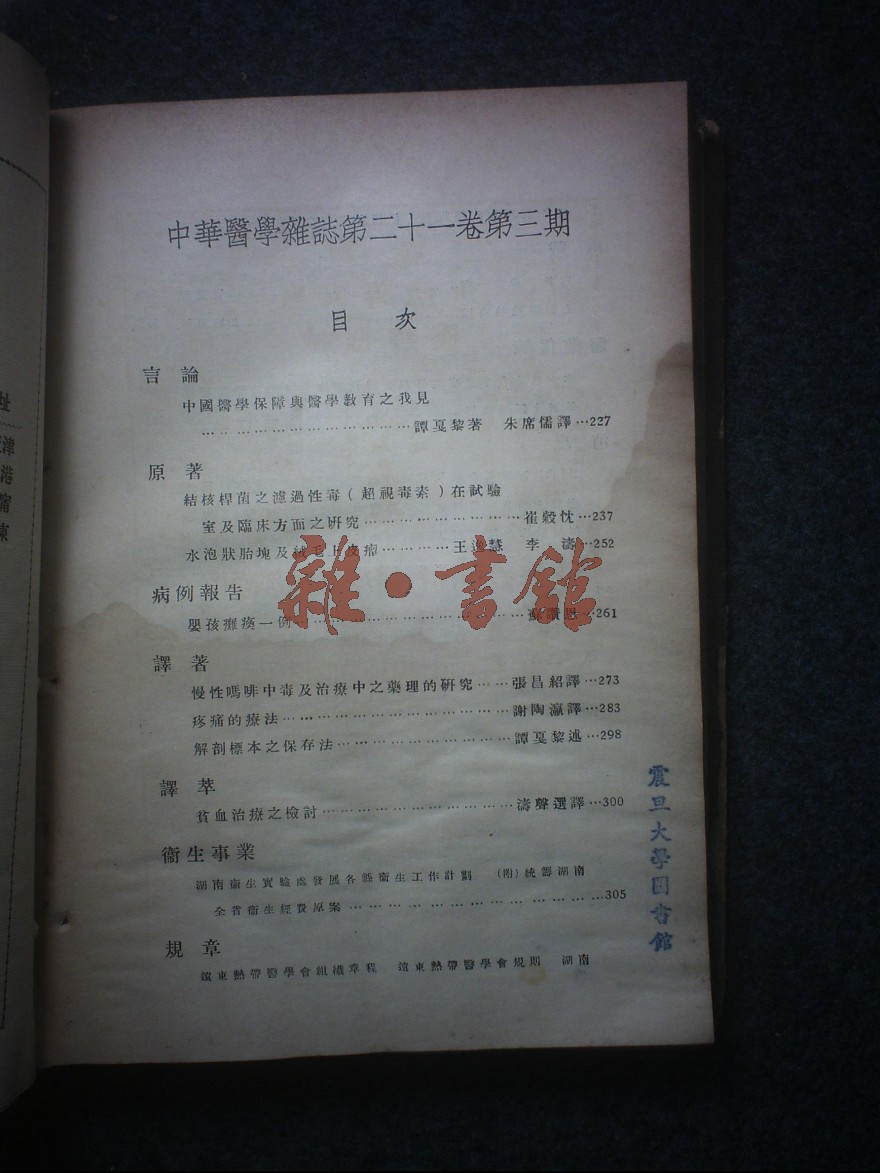 中華醫學雜誌第二十一卷第三期
目 次
言 論
中國醫學保障與醫學教育之我見
… … … … … … … … … … … 譚戛黎著 朱席儒譯…227
原 著
結核桿菌之濾過性毒(超視毒素)在試驗
室及臨床方面之研究… … … … … … … 崔榖忱…237
水泡狀胎塊及絨毛上皮瘤… … … … 王逸慧 李 濤…252
病例報告
嬰孩癱瘓一例… … … … … … … … 蘇讚恩…261
譯 著
慢性嗎啡中毒及治療中之藥理的研究… … 張昌紹譯…273
疼痛的療法… … … … … … … … … 謝陶瀛譯…283
解剖標本之保存法… … … … … … … 譚戛黎述…298
譯 萃
貧血治療之檢討… … … … … … … … 濤聲選譯…300
衞生事業
湖南衞生實驗處發展各縣衞生工作計劃 (附)統籌湖南
全省衞生經費原案… … … … … … … … … …305
規 章
遠東熱帶醫學會組織章程 遠東熱帶醫學會規則 湖南
震旦大學圖書館
雜·書館
址
津
港
甯
東